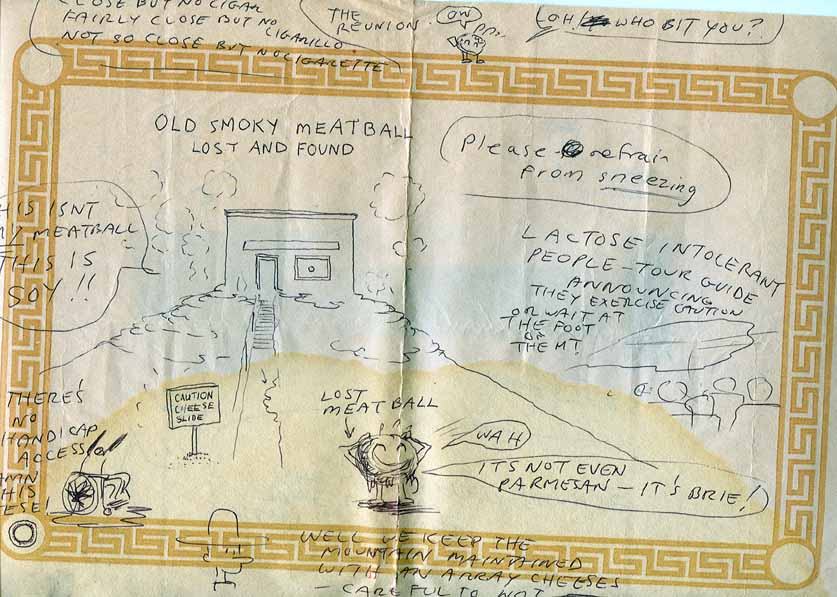 CLOSE BUT NO CIGAR
FAIRLY CLOSE BUT NO
CIGARILLO.
NOT SO CLOSE BUT NO CIGARETTE
THE
REUNION.
OW
OH! WHO BIT YOU?
OLD SMOKY MEATBALL
LOST AND FOUND
Please refrain
from sneezing
THIS ISNT
MY MEATBALL
THIS IS
SOY!!
LACTOSE INTOLERANT
PEOPLE - TOUR GUIDE
ANNOUNCING
THEY EXERCISE CAUTION
OR WAIT AT
THE FOOT
OF
THE MT!
CAUTION
CHEESE
SLIDE
LOST
MEATBALL
WAH
ITS NOT EVEN
PARMESAN - IT'S BRIE!
THERE'S
NO
HANDICAP
ACCESS!
THIS
WELL WE KEEP THE
MOUNTAIN MAINTAINED
WITH AN ARRAY CHEESES
- CAREFUL TO NOT